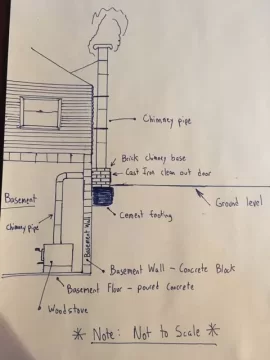 Chimney pipe
Brick chimney base
Cast Iron clean out door
Ground level
Cement footing
Basement
Chimney pipe
Basement Wall
Basement Wall - Concrete Block
Basement Floor - poured concrete
Woodstove
* Note: Not to Scale *